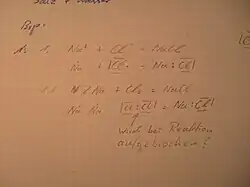 Bsp:
1. 1. Na⁺ + Cl⁻ = NaCl
Na + |Cl· = Na:Cl|
1.2 2 Na + Cl₂ = NaCl
Na Na |Cl:Cl| = Na:Cl|
wird bei Reaktion
aufgebrochen!